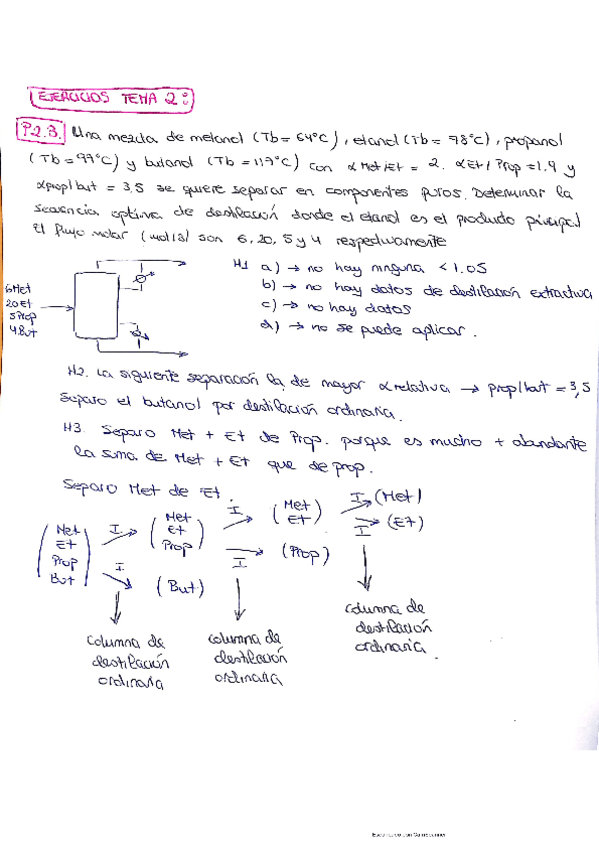 EJERCICIOS TEMA 2:
P.2.3. Una mezcla de metanol (Tb= 64°C), etanol (Tb= 78°C), propanol
(Tb = 97°C) y butanol (Tb = 117°C) con α Met/Et = 2. α Et/Prop = 1.9 y
α prop/but = 3,5 se quiere separar en componentes puros. Determinar la
secuencia optima de destilación donde el etanol es el producto principal
El flujo molar (mol/s) son 6, 20, 5 y 4 respectivamente
6 Met
20 Et
5 Prop
4 But
H1 a) → no hay ninguna < 1.05
b) → no hay datos de destilación extractiva
c) → no hay datos
d) → no se puede aplicar.
H2. La siguiente separación la de mayor α relativa → prop/but = 3,5
Separo el butanol por destilación ordinaria.
H3. Separo Met + Et de Prop. porque es mucho + abundante
la suma de Met + Et que de prop.
Separo Met de Et.
(Met Et Prop But) I. (Met Et Prop) I (Met Et) I (Met)
I. (But) I (Prop) I (Et)
columna de destilación ordinaria
columna de destilación ordinaria
columna de destilación ordinaria.